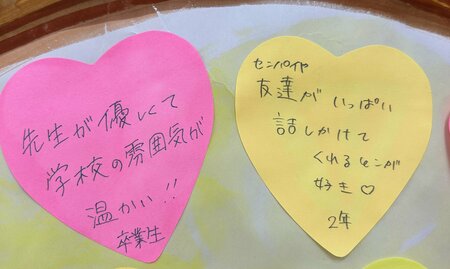 先生が優しくて
学校の雰囲気が
温かい!!
卒業生
センパイや
友達がいっぱい
話しかけて
くれるそこが
好き♡
2年